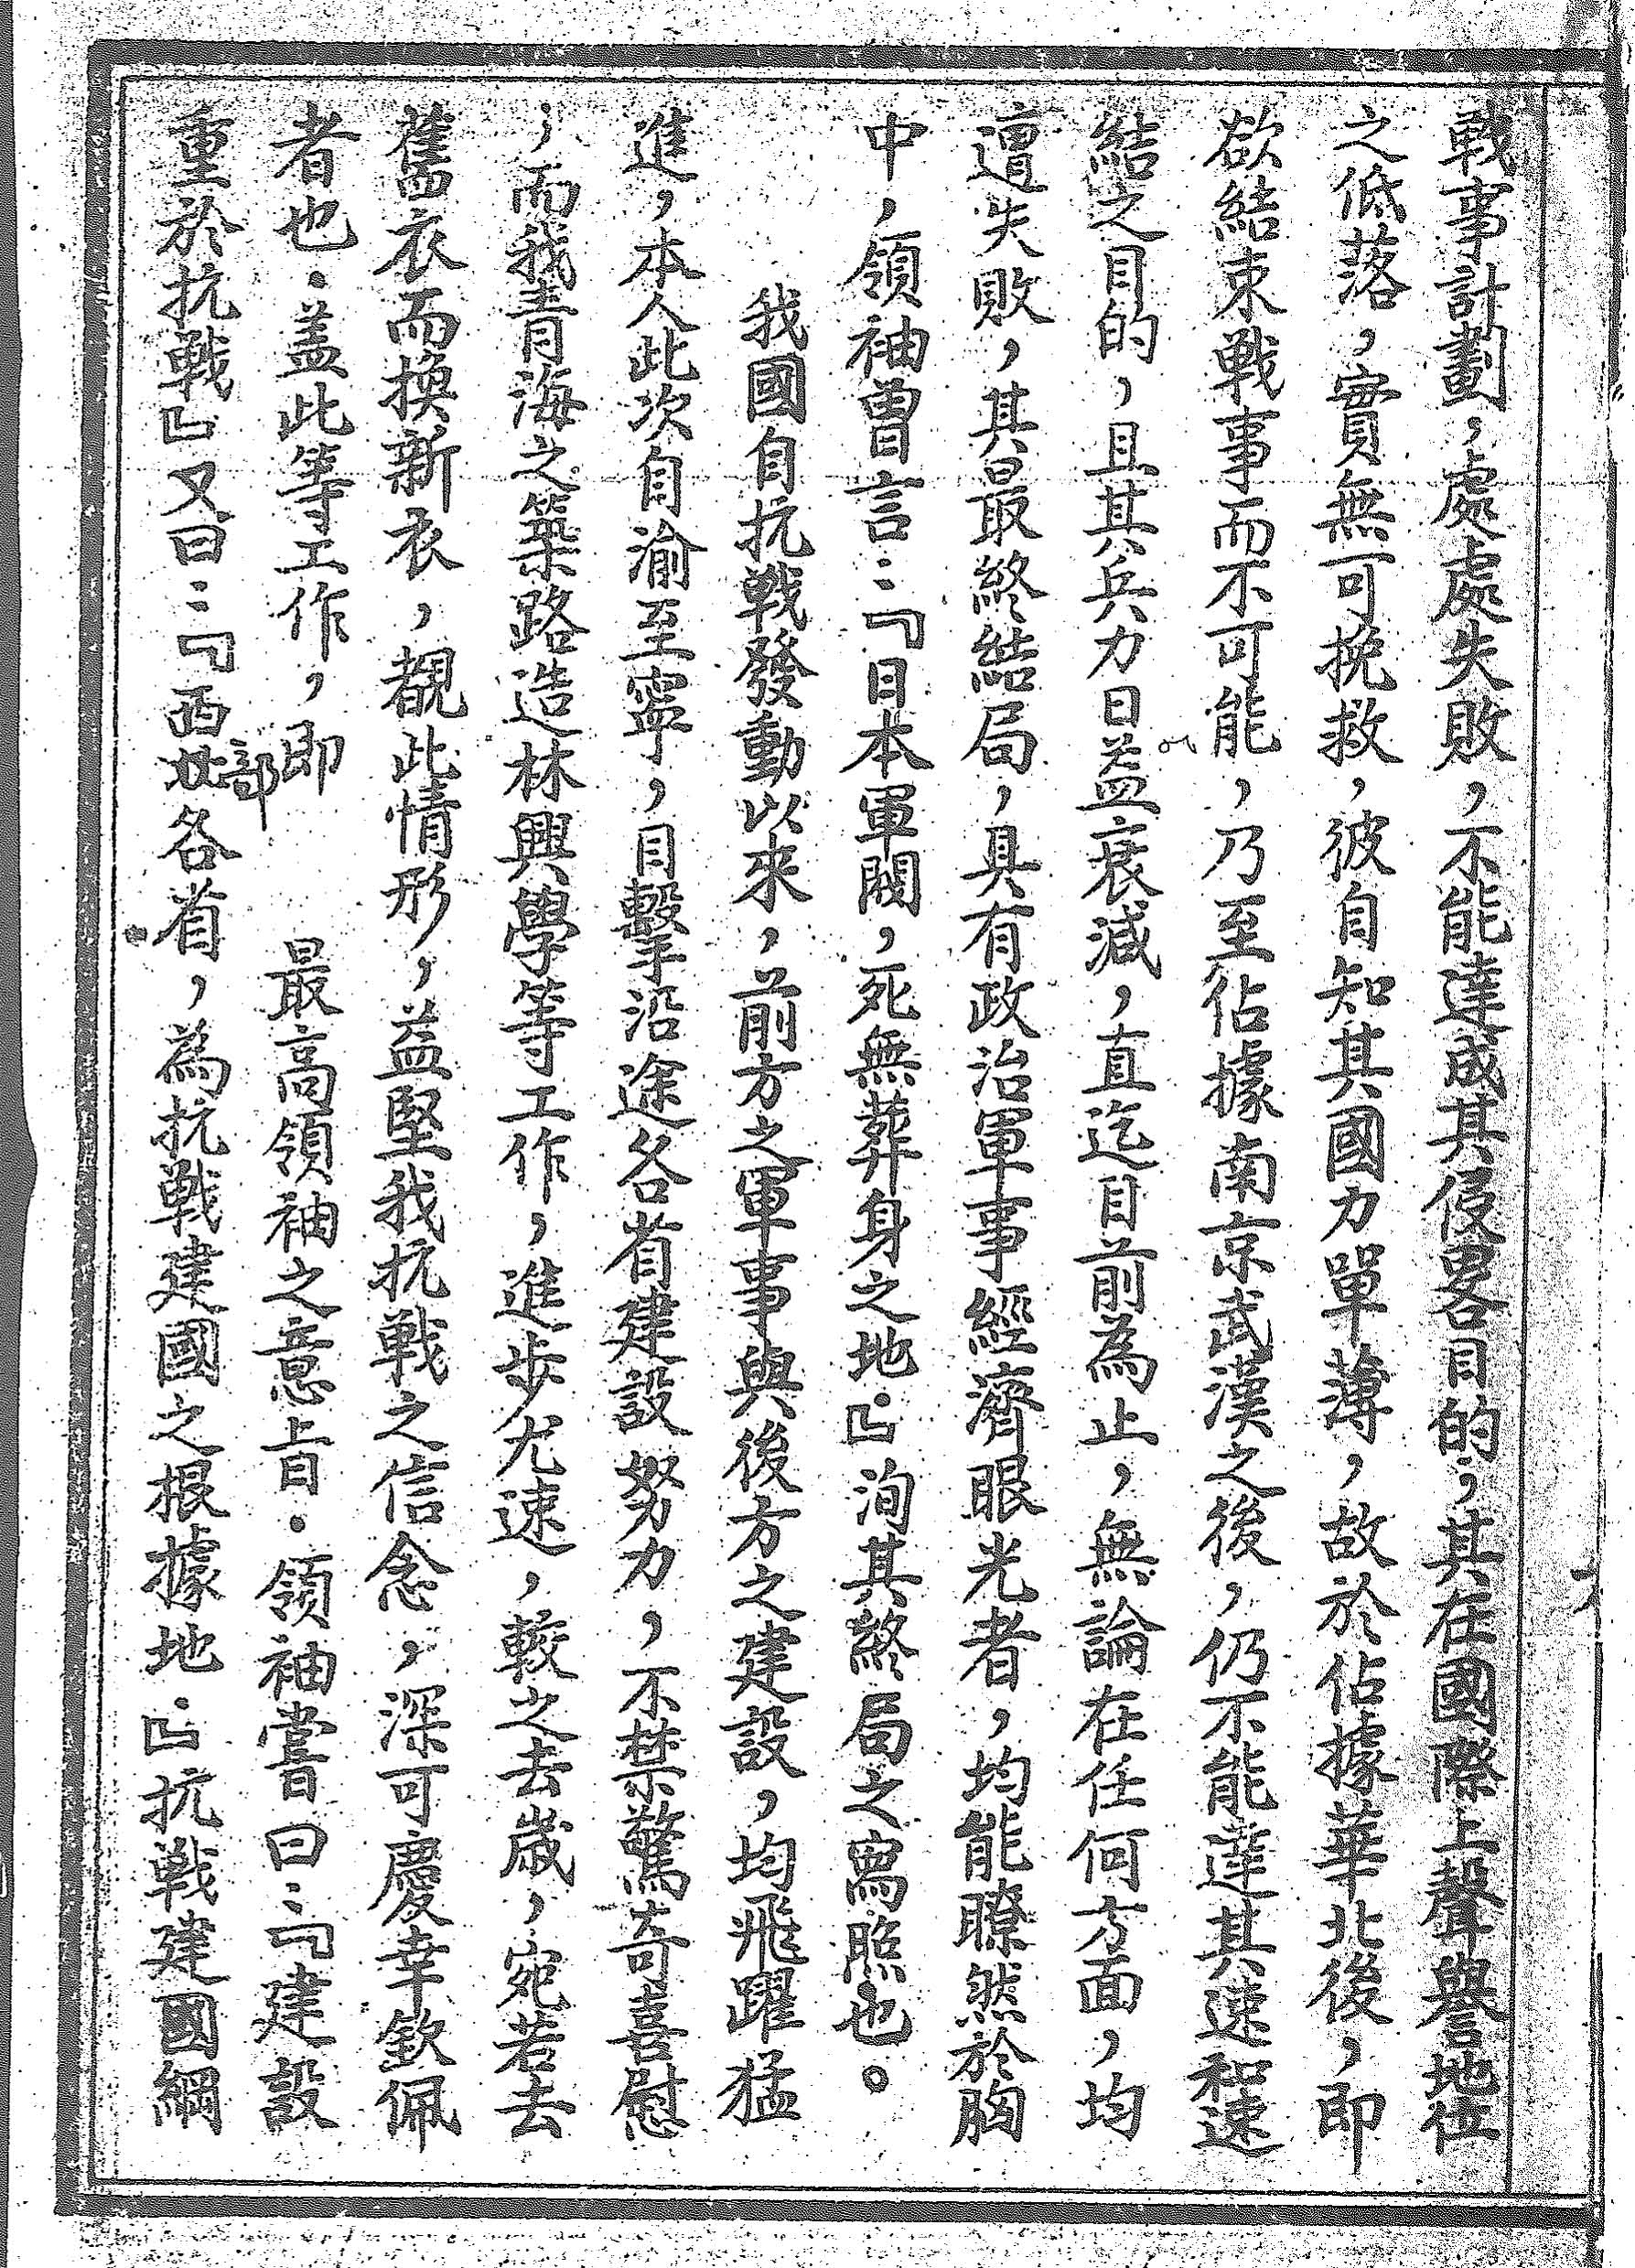 戰事計劃，處處失敗，不能達成其侵畧目的；其在國際上聲譽地位
之低落，實無可挽救，彼自知其國力單薄，故於佔據華北後，即
欲結束戰事而不可能，乃至佔據南京武漢之後，仍不能達其速和速
結之目的，且其兵力日益衰減，直迄目前為止，無論在任何方面，均
遭失敗，其最終結局，具有政治軍事經濟眼光者，均能瞭然於胸
中，領袖曾言：『日本軍閥，死無葬身之地．』洵其終局之寫照也。
我國自抗戰發動以來，前方之軍事與後方之建設，均飛躍猛
進，本人此次自渝至寧，目擊沿途各省建設努力，不禁驚奇喜慰
，而我青海之築路造林興學等工作，進步尤速，較之去歲，宛若去
舊衣而換新衣，覩此情形，益堅我抗戰之信念，深可慶幸欽佩
者也．盖此等工作，即　最高領袖之意旨．領袖嘗曰：『建設
重於抗戰』又曰：『西部各省，為抗戰建國之根據地．』抗戰建國綱